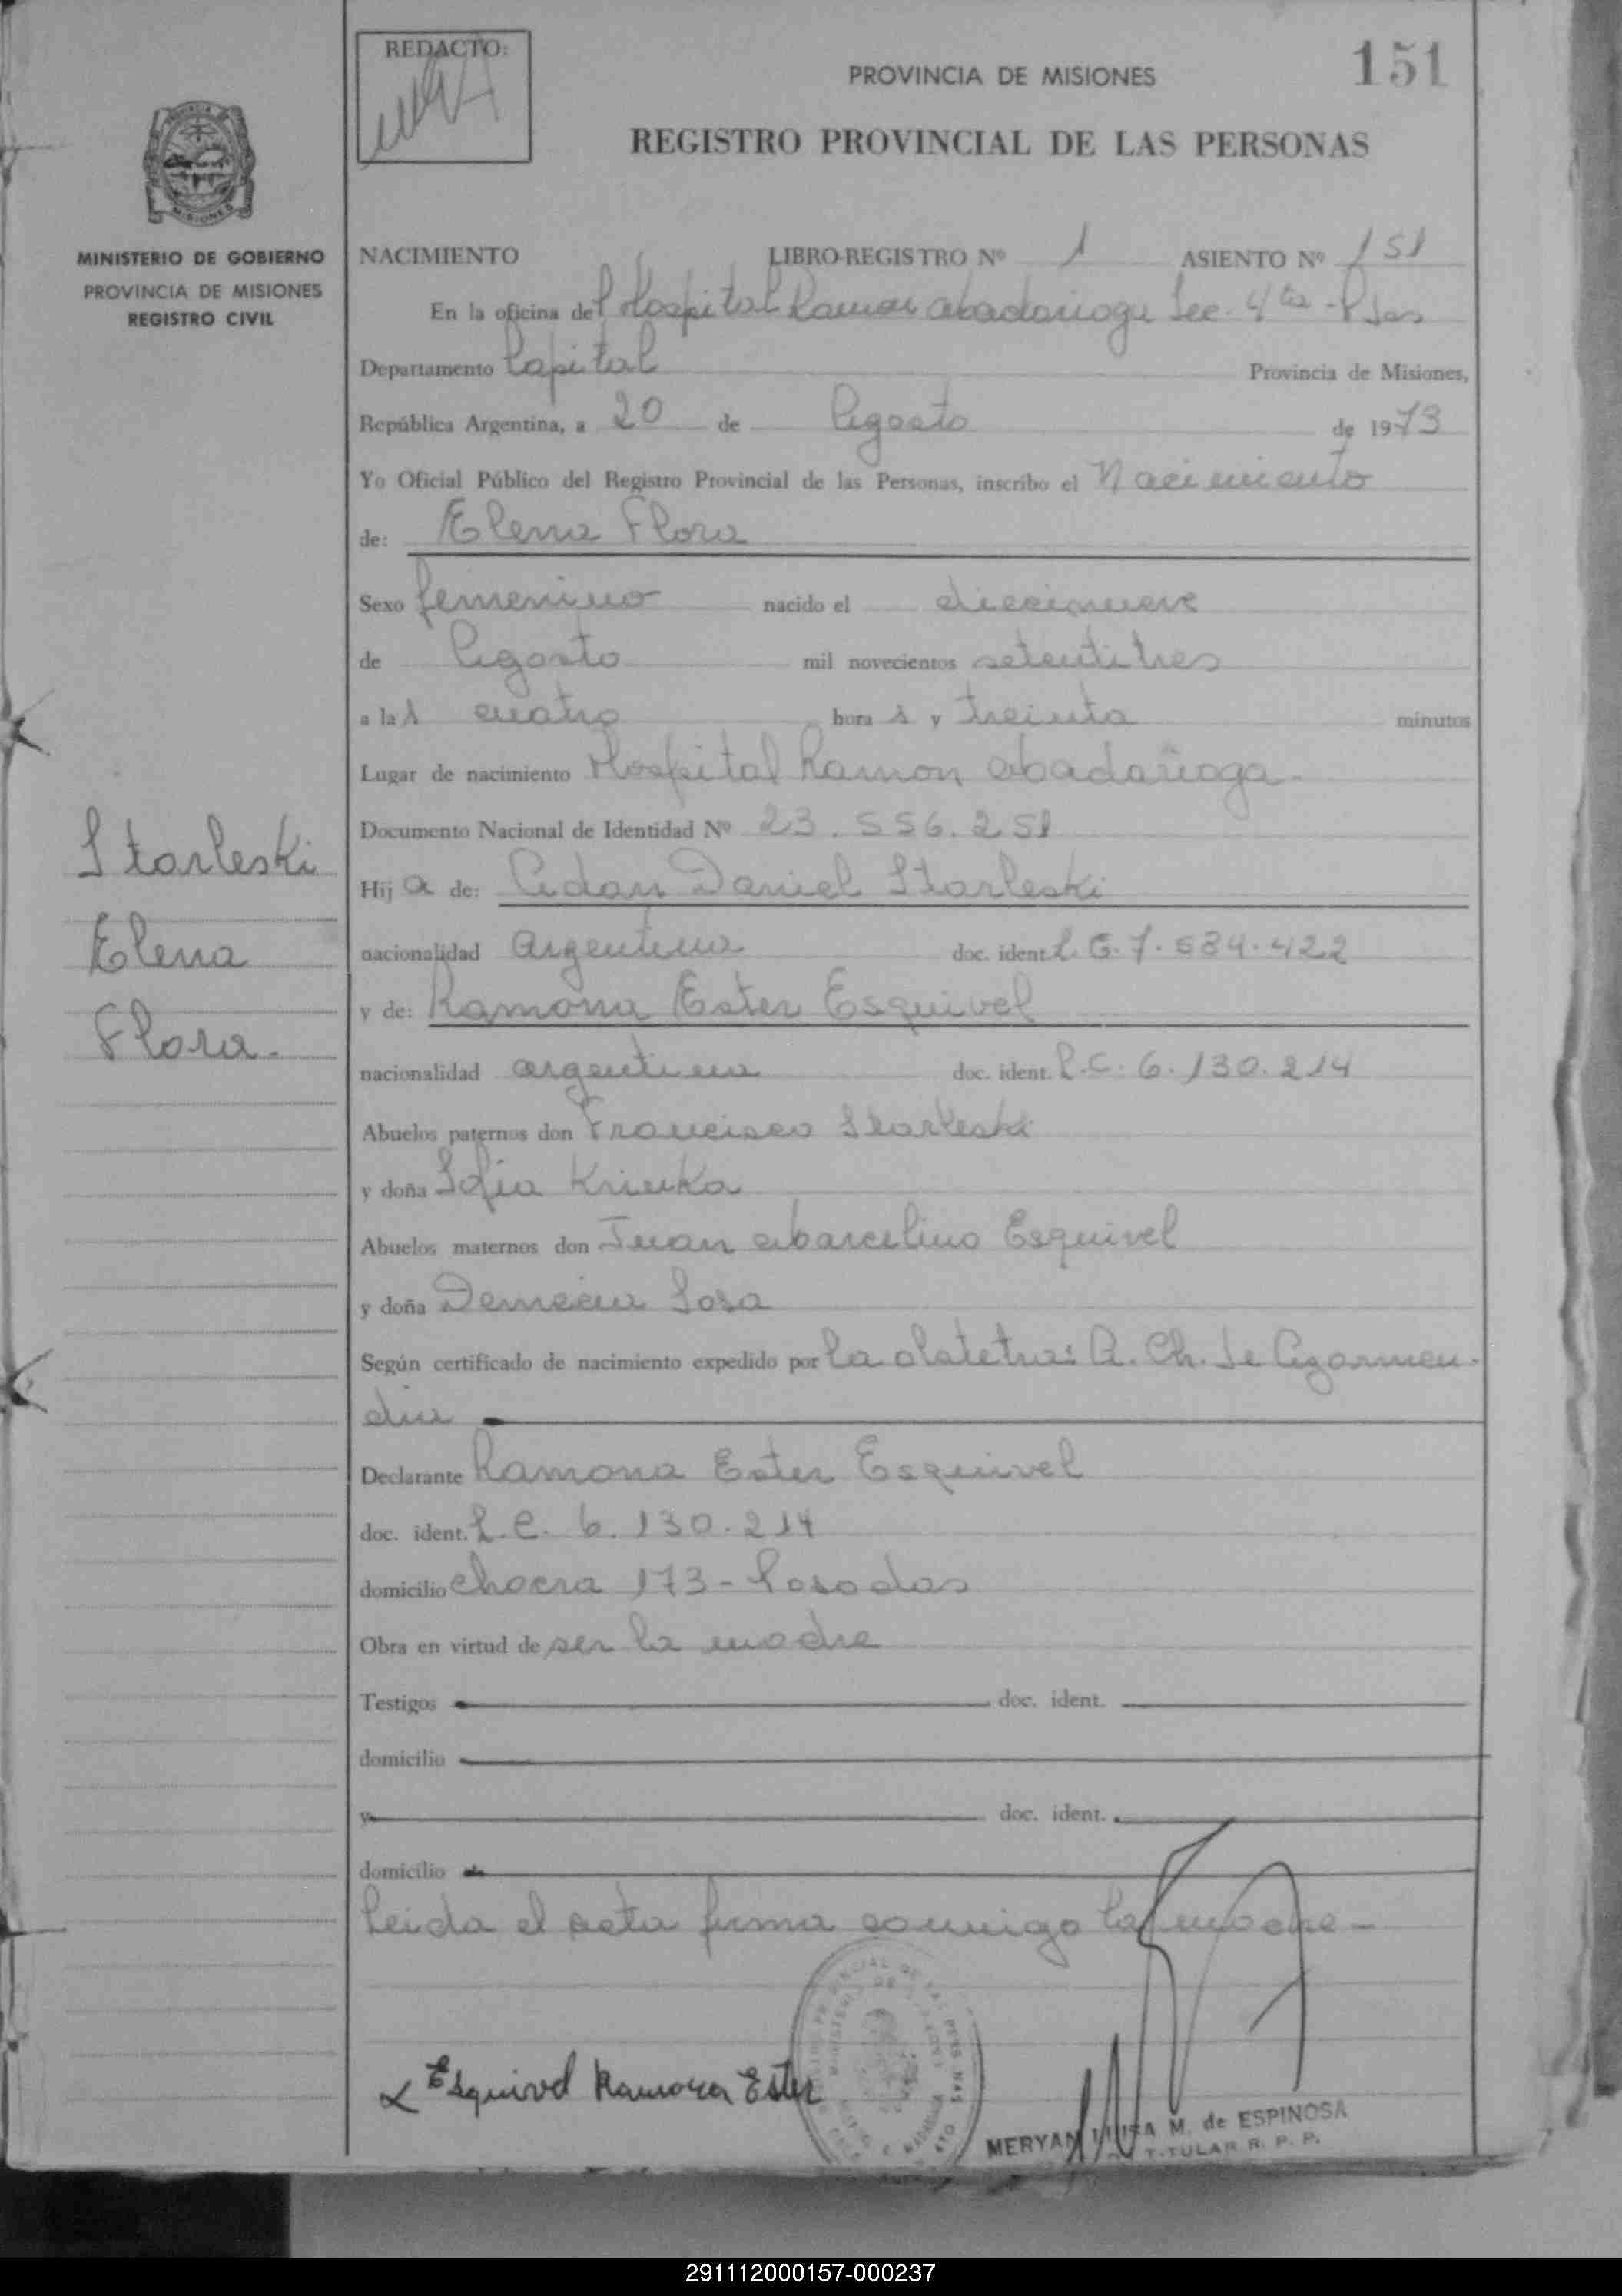 REDACTO:
PROVINCIA DE MISIONES
151
REGISTRO PROVINCIAL DE LAS PERSONAS
MISIONES
MINISTERIO DE GOBIERNO
PROVINCIA DE MISIONES
REGISTRO CIVIL
NACIMIENTO LIBRO-REGISTRO Nº 1 ASIENTO Nº 151
En la oficina del Hospital Ramon Madariaga Sec. 4ta - Pdas
Departamento Capital Provincia de Misiones,
República Argentina, a 20 de Agosto de 1973
Yo Oficial Público del Registro Provincial de las Personas, inscribo el Nacimiento
de: Elena Flora
Sexo femenino nacido el diecinueve
de Agosto mil novecientos setentitres
a las cuatro horas y treinta minutos
Lugar de nacimiento Hospital Ramon Madariaga-
Documento Nacional de Identidad Nº 23.556.251
Starleski
Elena
Flora.
Hija de: Adan Daniel Starleski
nacionalidad Argentina doc. ident. L.E. 7.584.422
y de: Ramona Ester Esquivel
nacionalidad argentina doc. ident. L.C. 6.130.214
Abuelos paternos don Francisco Starleski
y doña Sofia
Abuelos maternos don Juan Marcelino Esquivel
y doña Sosa
Según certificado de nacimiento expedido por la obstetra: A. Ch. de Agarmen-
dia
Declarante Ramona Ester Esquivel
doc. ident. L.C. 6.130.214
domicilio chacra 173 - Posadas
Obra en virtud de ser la madre
Testigos doc. ident.
domicilio
y doc. ident.
domicilio
Leida el acta firma conmigo la madre-
Esquivel Ramona Ester
MERYAN M. de ESPINOSA
TITULAR R. P. P.
291112000157-000237